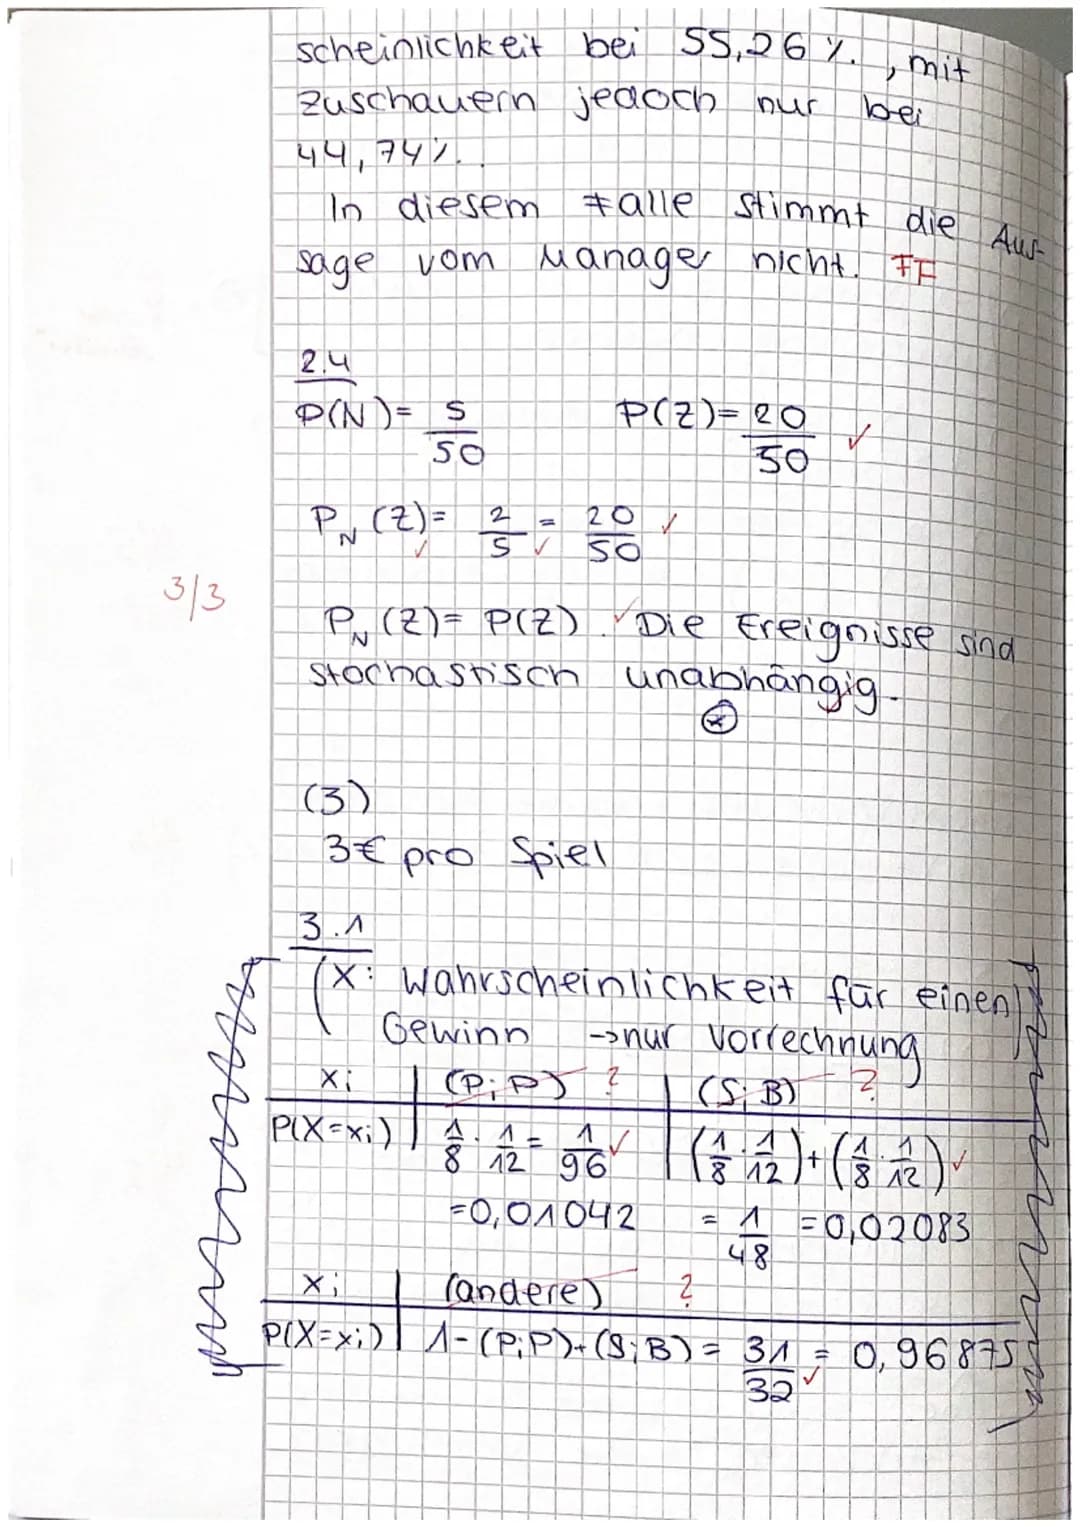 scheinlichkeit bei 55,26 %. , mit
zuschauern jedoch nur bei
44,74%.
In diesem Falle stimmt die Aus-
sage vom Manager nicht. FF
2.4
P(N)= 5/50 P(Z)= 20/50 ✓
P_N (Z)= 2/5 = 20/50 ✓
3/3
P_N (Z)= P(Z). ✓ Die Ereignisse sind
stochastisch unabhängig.
(3)
3€ pro Spiel
3.1
(X: Wahrscheinlichkeit für einen)
Gewinn ->nur Vorrechnung
xi | (P;P) ? | (S;B) ?
P(X=xi) | 1/8 · 1/12 = 1/96 ✓ | (1/8 · 1/12)+(1/8 · 1/12) ✓
=0,01042 = 1/48 =0,02083
xi | (andere) ?
P(X=xi) | 1-(P;P)+(S;B)= 31/32 ✓ = 0,96875